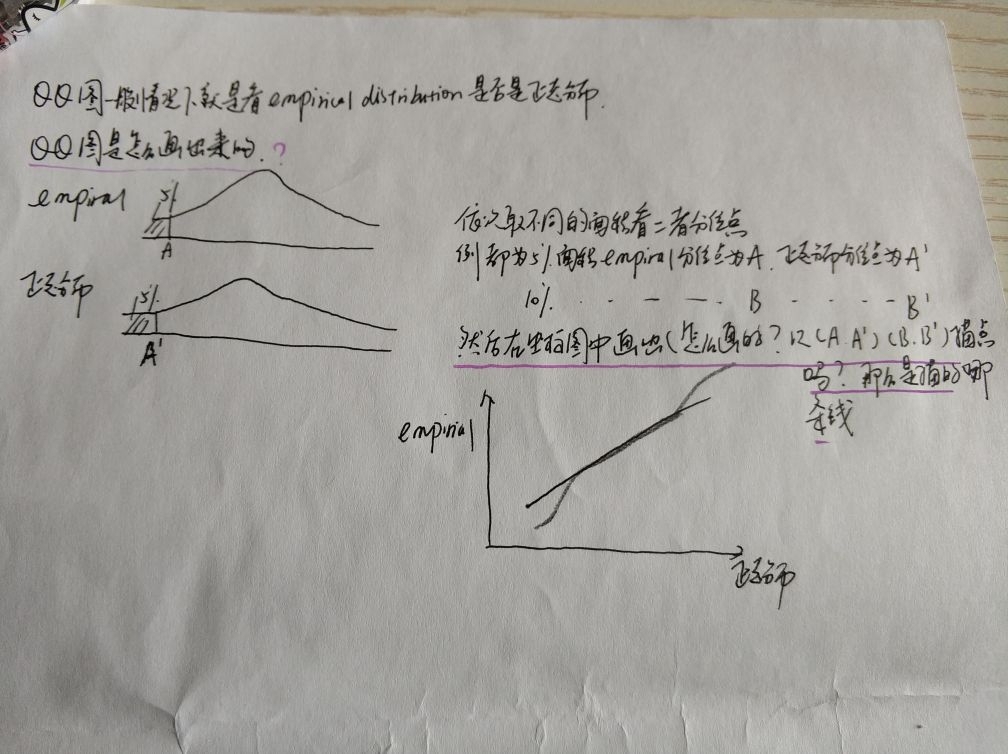 QQ图一般情况下就是看empirical distribution是否是正态分布.
QQ图是怎么画出来的.?
empiral
5%
A
正态分布
5%
A'
依次取不同的面积看二者分位点
例都为5%面积empiral分位点为A.正态分布分位点为A'
10%. - - - - . B - . . - - B'
然后在坐标图中画出(怎么画的?以(A.A')(B.B')描点
吗?那么是描的哪
条线
empirial
正态分布